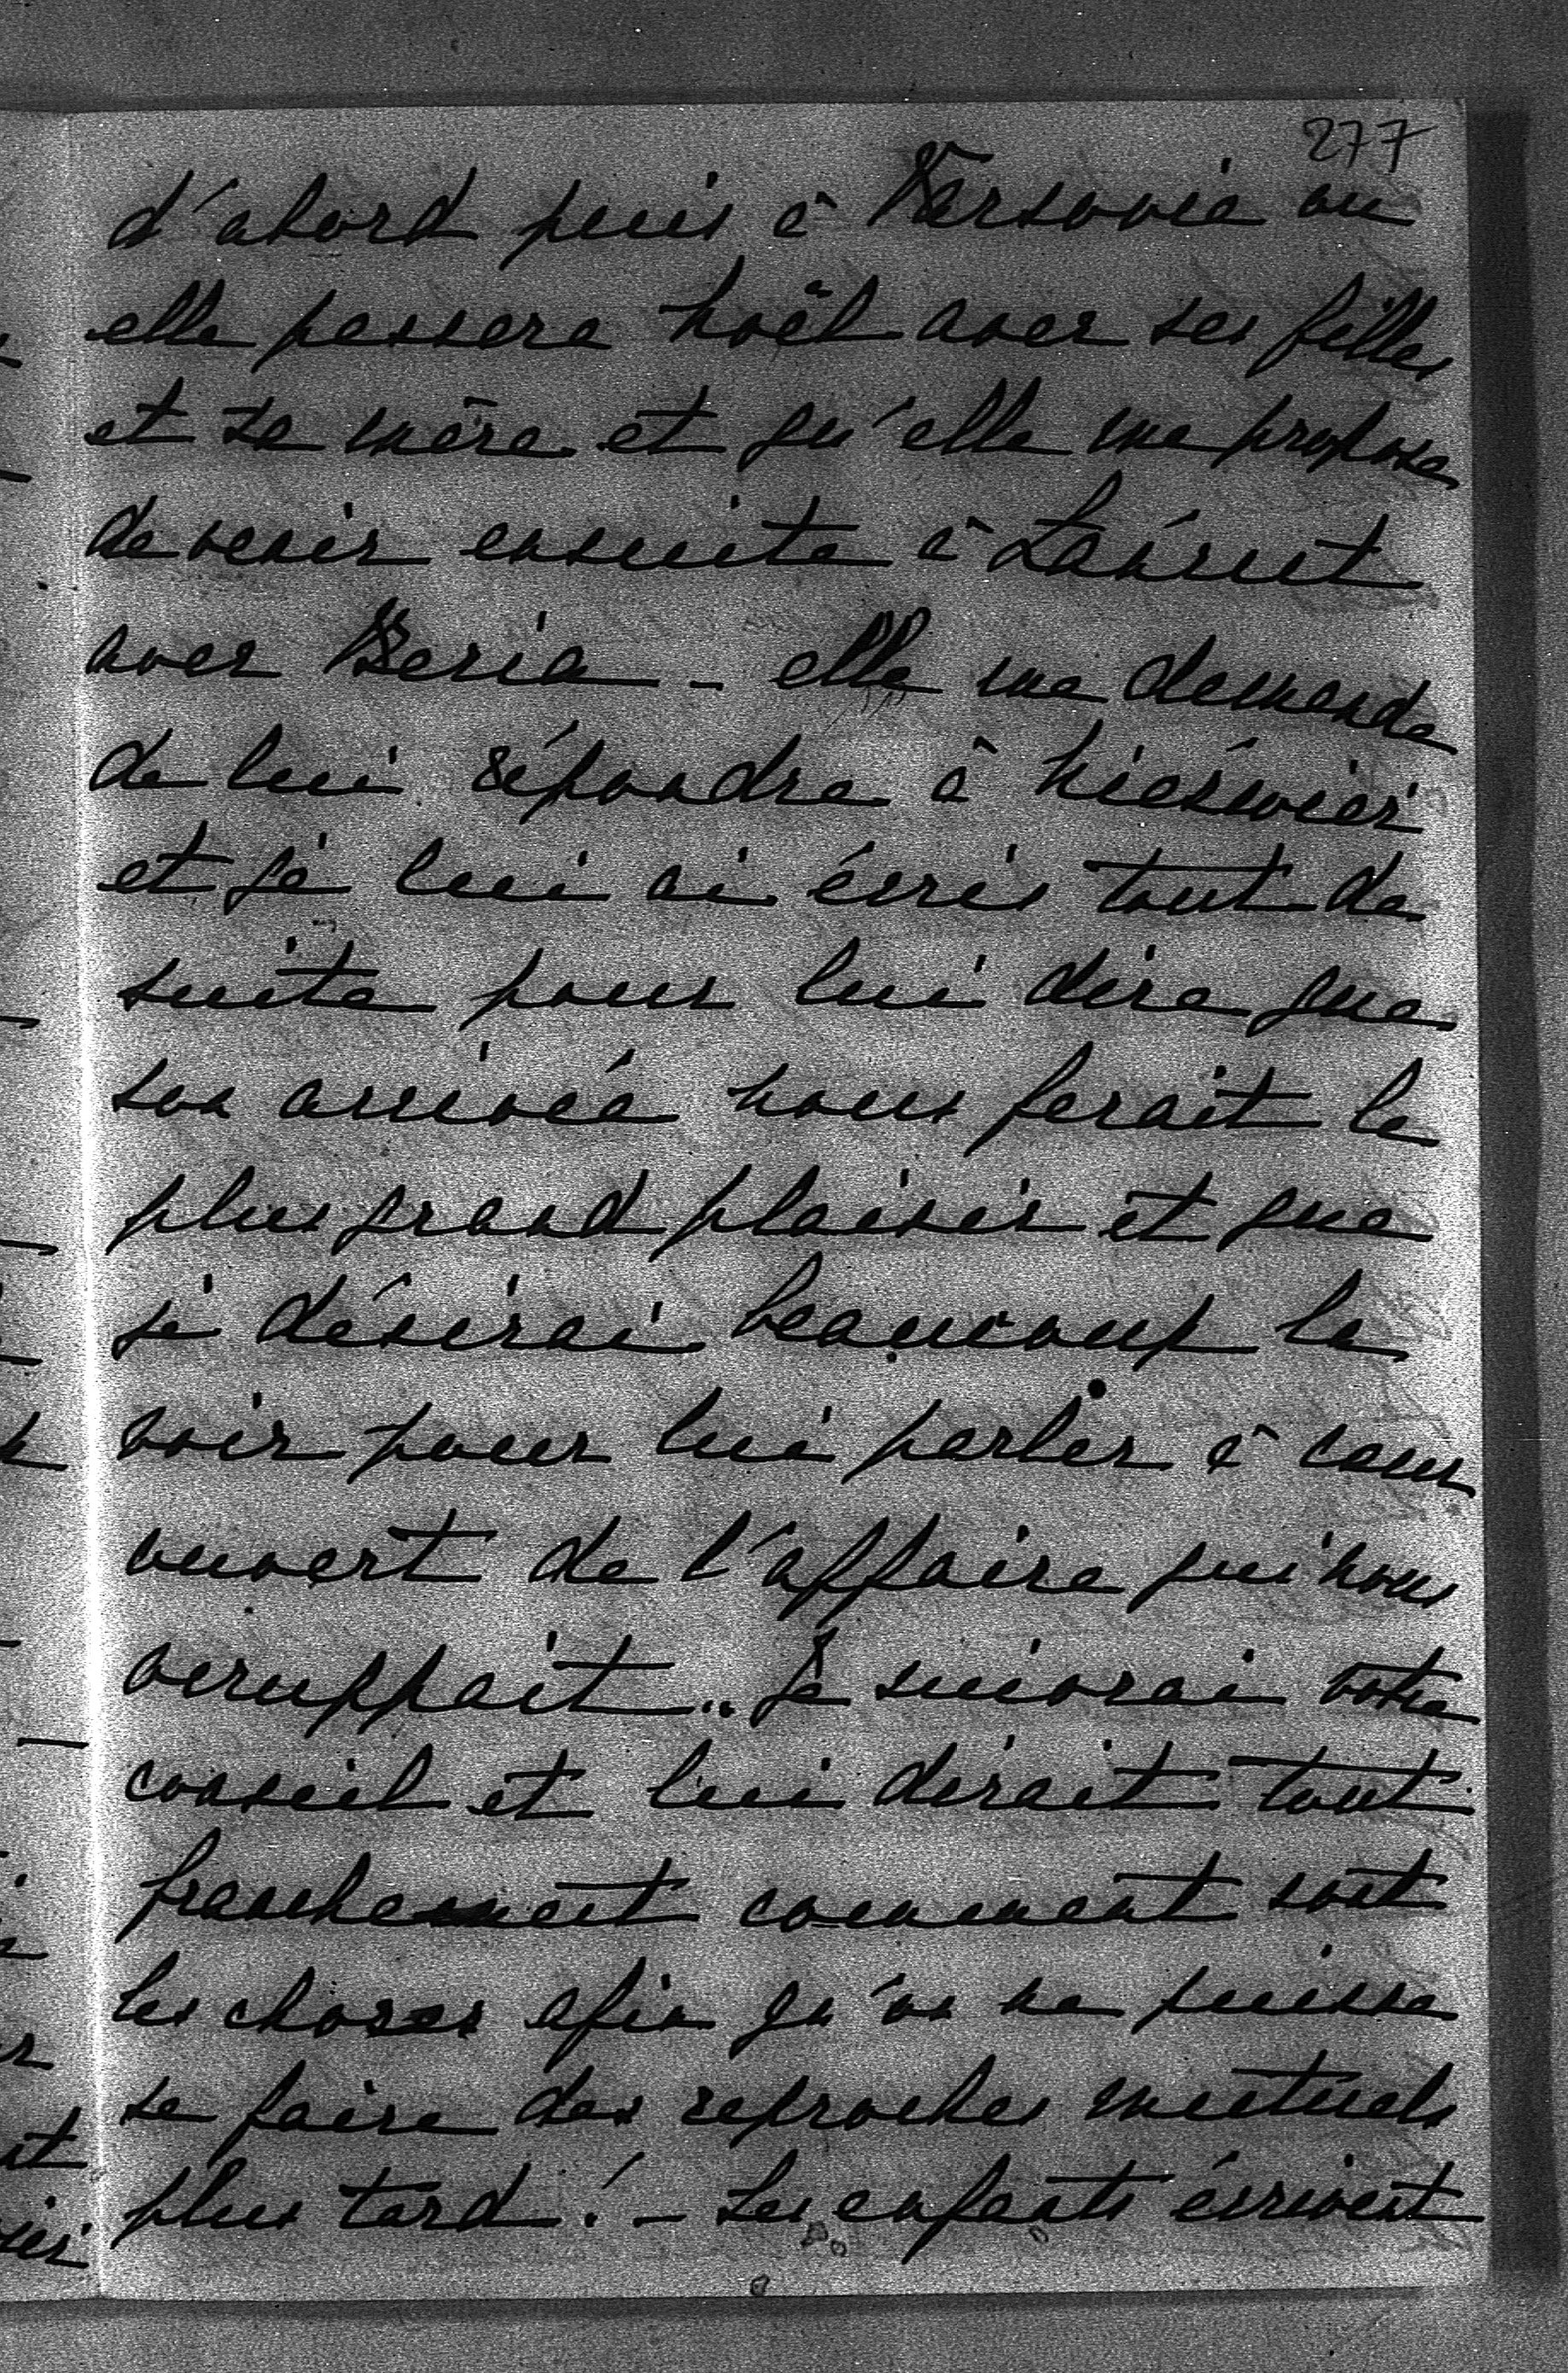 277
d'abord puis à Varsovie ou
elle passera Noël avec ses filles
et sa mère et qu'elle me propose
de venir ensuite à Łańcut
avec Beria - elle me demande
de lui répondre à Nieświez
et je lui ai écris tout de
suite pour lui dire que
son arrivée nous ferait le
plus grand plaisir et que
je désirai beaucoup la
voir pour lui parler à cœur
ouvert de l'affaire qui nous
occuppait.. Je suivrai votre
conseil et lui dirait tout
franchement comment sont
les choses afin qu'on ne puisse
se faire des reproches mutuels
plus tard! - Les enfants écrivent